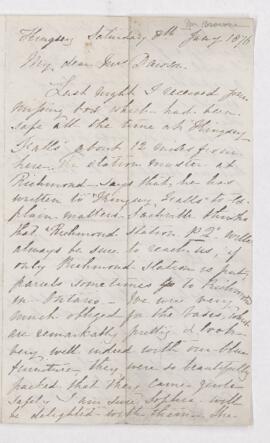 Mr Brown
Kingsey Saturday 8th Jany 1876
My dear Mrs Dawson.
Last night I received your
missing box which had been
safe all the time at Kingsey
Falls about 12 miles from
here. The station master at
Richmond says that he has
written to Kingsey Falls to ex-
plain matters. thinks
that Richmond Station P.Q. will
always be sure to reach us, if
only Richmond Station is put,
parcels sometimes go to Richmond
in Ontario. We were very
much obliged for the vases, which
are remarkably pretty & look
very well indeed with our blue
furniture, they were so beautifully
packed that they came quite
safely. I am sure Sophia will
be delighted with them. She